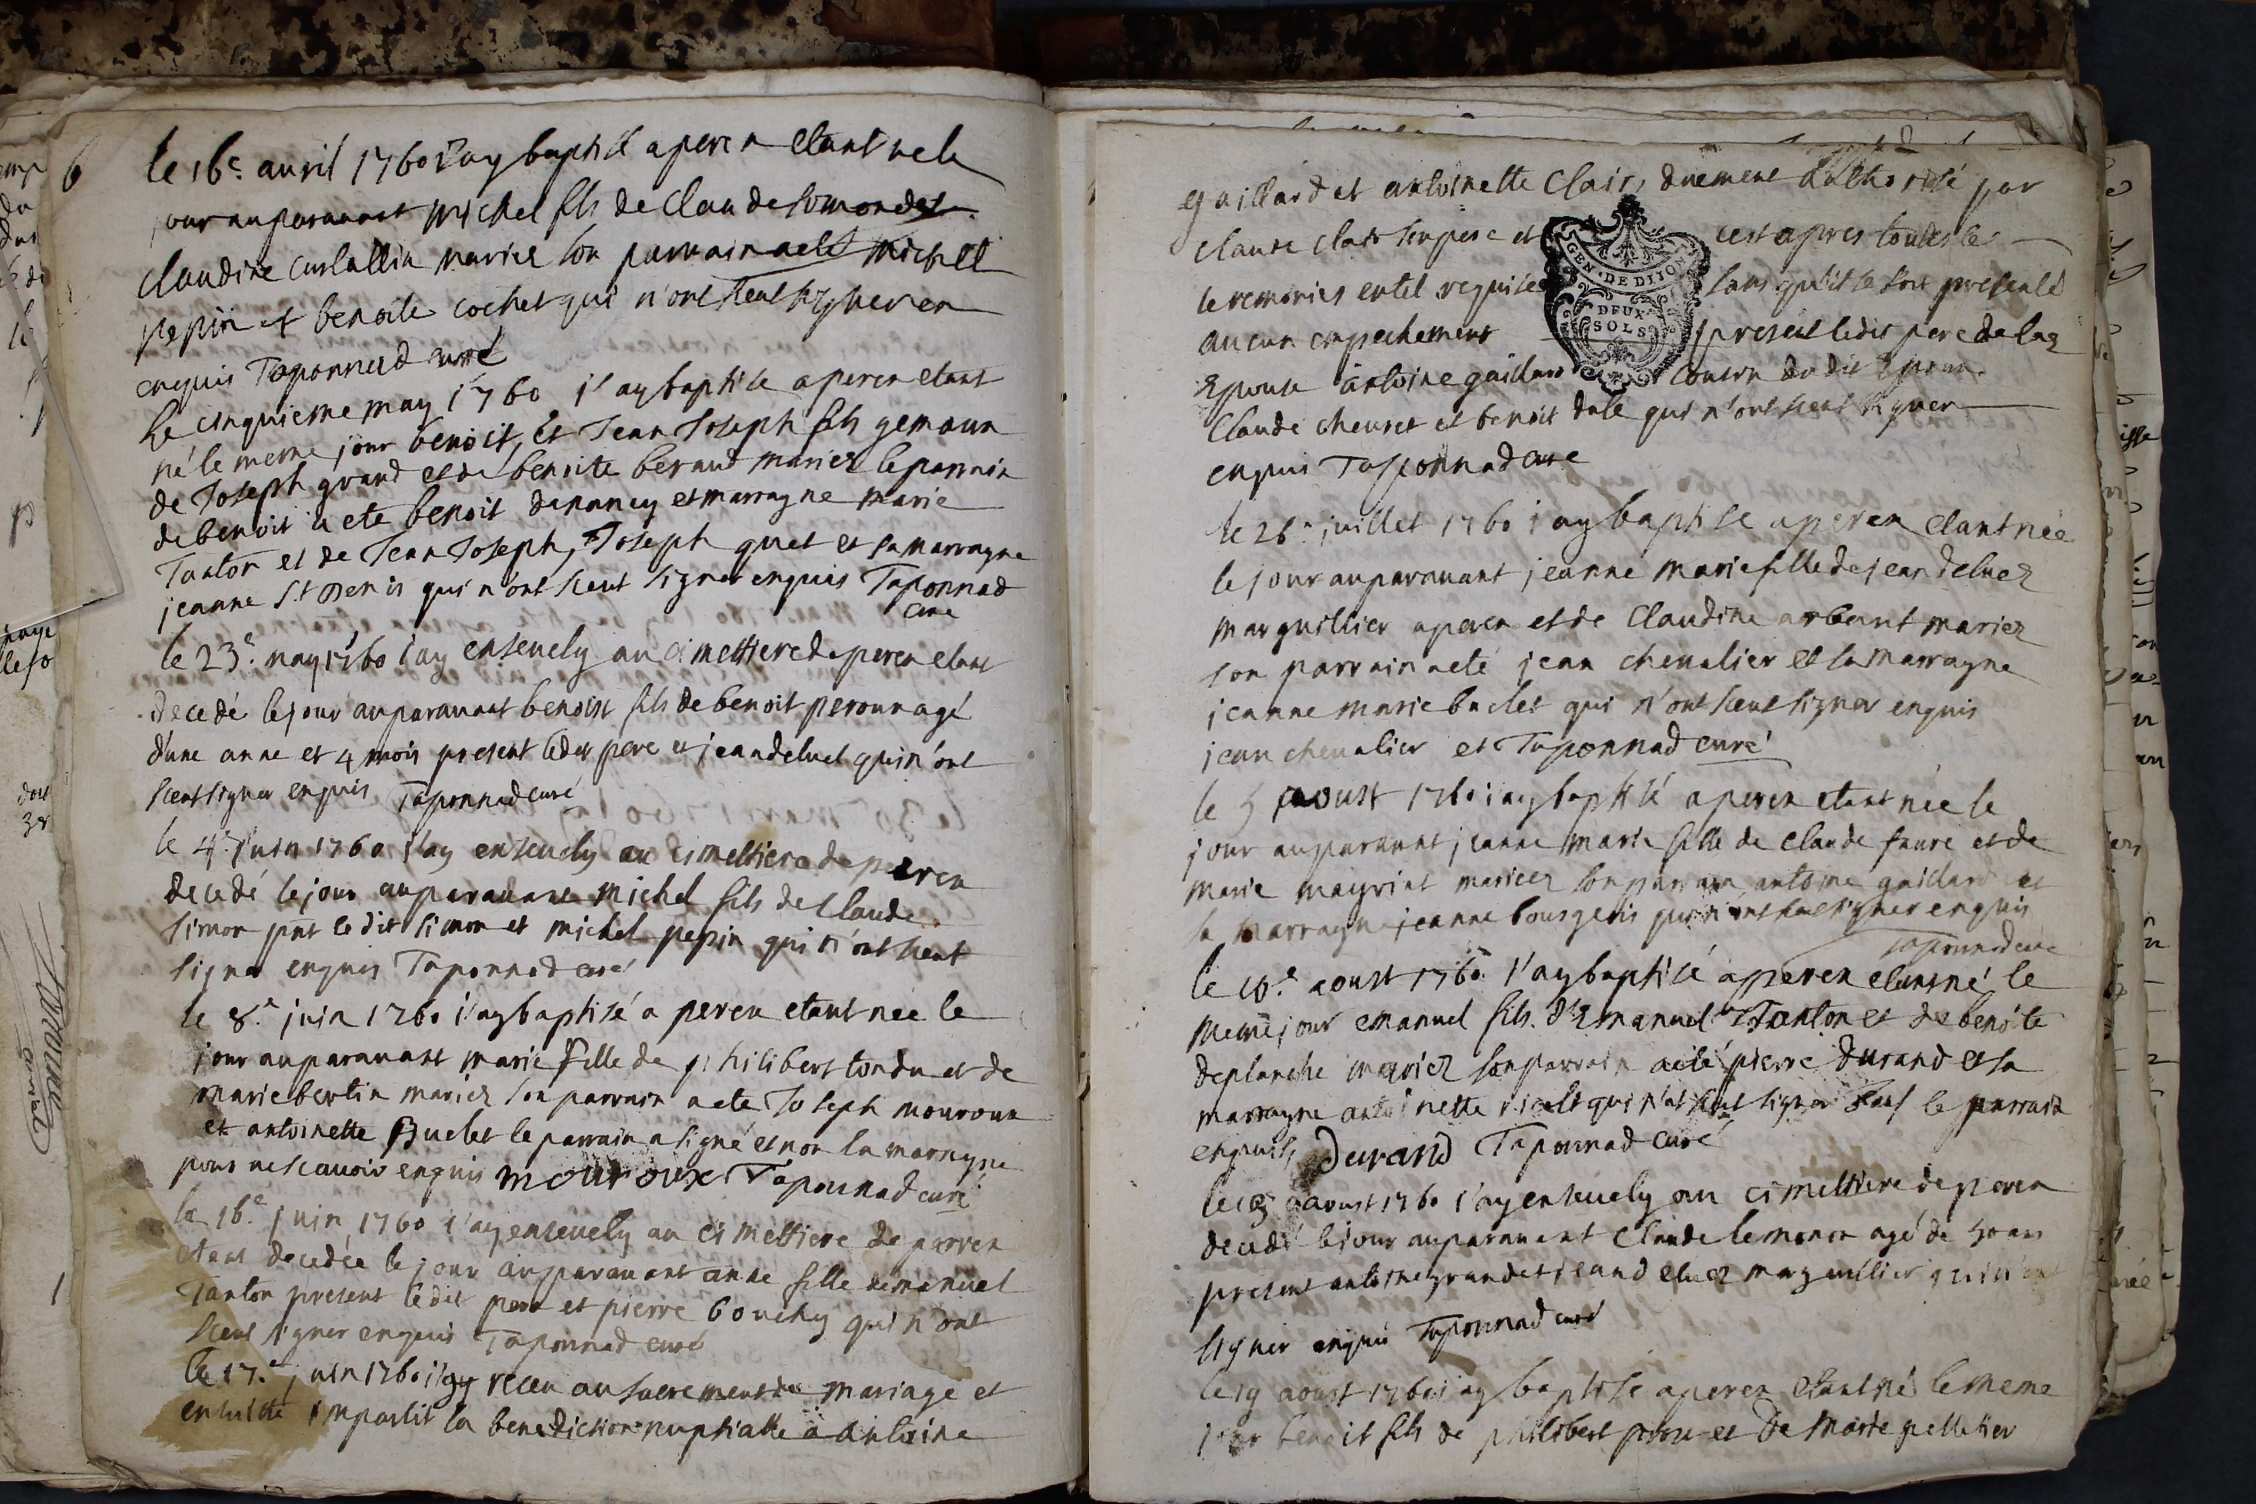 6
le 16e avril 1760 i'ay baptisé a peren etant ne le
jour auparavant Michel fils de Claude
claudine mariez son parrain a eté Michel
pepin et benoite cochet qui n'ont sceut signer en
enquis Taponnad curé
Le cinquieme may 1760 i'ay baptisé a peren etant
né le meme jour benoit, et Jean Joseph fils gemaux
de Joseph grand et de benoite beraud mariez le parrain
de benoit a ete benoit et marragne marie
Tanton et de Jean Joseph, Joseph guet et sa marragne
jeanne St Denis qui n'ont sceut signer enquis Taponnad
cure
le 23e may 1760 i'ay ensevely au cimettiere de peren etant
decedé le jour auparavant benoist fils de benoit peroux agé
d'une anne et 4 mois present ledit pere et jean deluel qui n'ont
sceut signer enquis Taponnad curé
le 4e juin 1760 i'ay ensevely au cimettiere de peren
decedé le jour auparavant Michel fils de Claude
Simon pnt le dit Simon et michel pepin qui n'ont sceut
signer enquis Taponnad curé
le 8e juin 1760 i'ay baptisé a peren etant née le
jour auparavant marie fille de philibert tondu et de
marie bertin mariez son parrain a ete Joseph mouroux
et antoinette Buclet le parrain a signé et non la marragne
pour ne scavoir enquis mouroux Taponnad curé
le 16e juin 1760 i'ay ensevely au cimettiere de perren
etant decedée le jour auparavant anne fille demanuel
Tanton present le dit pere et pierre bouchy qui n'ont
sceut signer enquis Taponnad curé
le 17e juin 1760 i'ay receu au sacrement de mariage et
ensuitte impartit la benediction nuptialle a antoine
gaillard et antoinette Clair, duement authorisé par
claude clair son pere et cest apres toutes les
ceremonies entel requises sans qu'il se soit presenté
aucun empechement present ledit pere de lad
Epouse antoine gaillard cousin du dit Epoux
Claude chevret et benoit dale qui n'ont sceut signer
enquis Taponnad cure
GEN · DE DIJON
DEUX
SOLS
le 26e juillet 1760 i'ay baptisé a peren etant née
le jour auparavant jeanne marie fille de jean deluez
marguillier a peren et de Claudine arbant mariez
son parrain a eté jean chevalier et sa marragne
jeanne marie buclet qui n'ont sceut signer enquis
jean chevalier et Taponnad curé
le 5 aoust 1760 i'ay baptisé a peren etant née le
jour auparavant jeanne marie fille de claude faure et de
marie mayriat mariez son parrain antoine gaillard et
sa marragne jeanne bourgeois qui n'ont sceut signer enquis
Taponnad cure
le 10e aoust 1760 i'ay baptisé a peren etant né le
meme jour emanuel fils d'Emanuel Tanton et de benoite
deplanche mariez son parrain a eté pierre durand et sa
marragne antoinette qui n'ont sceut signer sauf le parrain
enquis Durand Taponnad curé
le aoust 1760 i'ay ensevely au cimettiere de peren
decedé le jour auparavant Claude lemonon agé de 50 ans
present antoine grand et jean deluez marguillier qui n'ont
signer enquis Taponnad curé
le 19 aoust 1760 i'ay baptisé a peren etant né le meme
jour benoit fils de philibert et de Marie pelletier